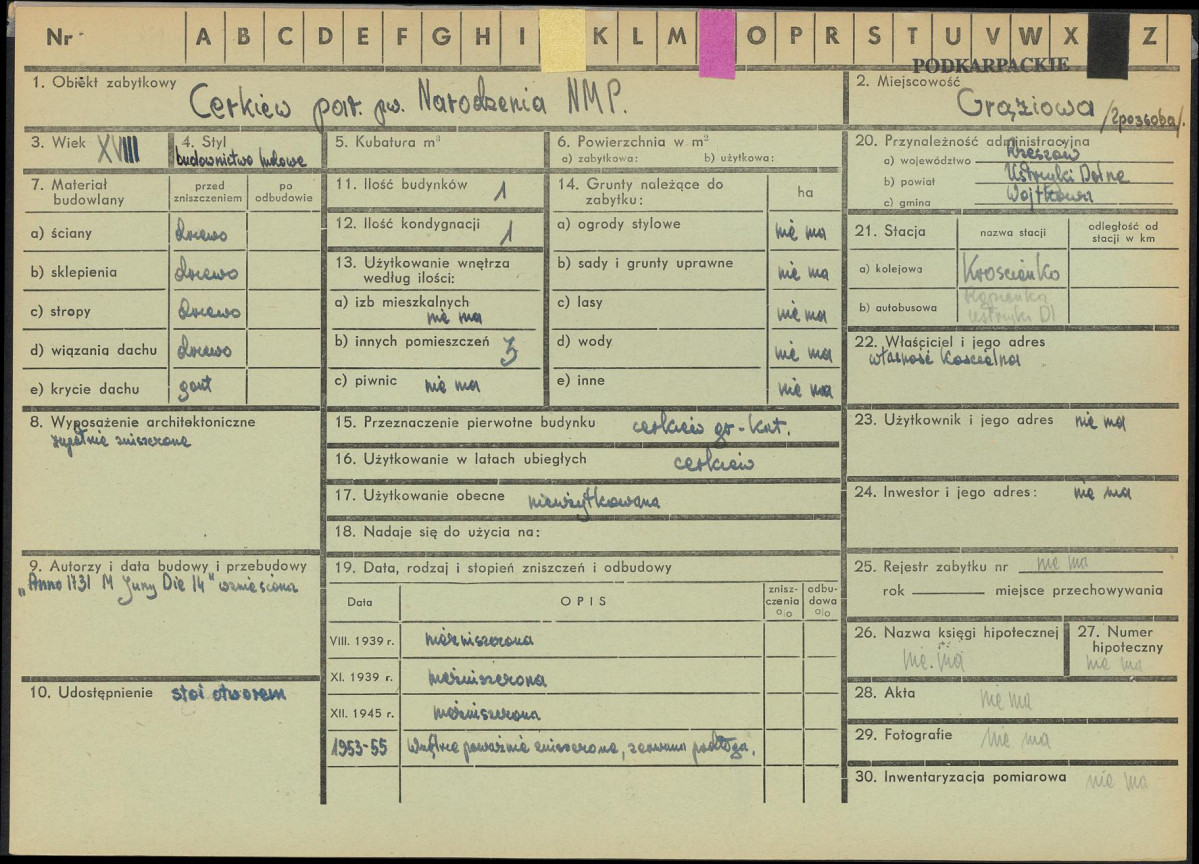 Nr
A B C D E F G H I K L M O P R S T U V W X Z
PODKARPACKIE
1. Obiekt zabytkowy
Cerkiew par. pw. Narodzenia NMP.
2. Miejscowość
Grąziowa /2pozsoba/.
3. Wiek XVIII
4. Styl
budownictwo ludowe
5. Kubatura m³
6. Powierzchnia w m²
a) zabytkowa: b) użytkowa:
20. Przynależność administracyjna
a) województwo Rzeszów
b) powiat Ustrzyki Dolne
c) gmina Wojtkowa
7. Materiał budowlany
przed zniszczeniem
po odbudowie
a) ściany drzewo
b) sklepienia drzewo
c) stropy drzewo
d) wiązania dachu drzewo
e) krycie dachu gont
11. Ilość budynków 1
12. Ilość kondygnacji 1
13. Użytkowanie wnętrza
według ilości:
a) izb mieszkalnych
nie ma
b) innych pomieszczeń 3
c) piwnic nie ma
14. Grunty należące do
zabytku:
ha
a) ogrody stylowe nie ma
b) sady i grunty uprawne nie ma
c) lasy nie ma
d) wody nie ma
e) inne nie ma
21. Stacja
nazwa stacji
odległość od
stacji w km
a) kolejowa Krościenko
b) autobusowa
Ustrzyki Dl
22. Właściciel i jego adres
własność Kościelna
8. Wyposażenie architektoniczne
zupełnie zniszczone
15. Przeznaczenie pierwotne budynku cerkiew gr-kat.
16. Użytkowanie w latach ubiegłych cerkiew
17. Użytkowanie obecne nieużytkowana
18. Nadaje się do użycia na:
23. Użytkownik i jego adres nie ma
24. Inwestor i jego adres: nie ma
9. Autorzy i data budowy i przebudowy
„Anno 1731 M Juny Die 14" wzniesiona
10. Udostępnienie stoi otworem
19. Data, rodzaj i stopień zniszczeń i odbudowy
Data
OPIS
znisz-
czenia
%
odbu-
dowa
%
VIII. 1939 r. niezniszczona
XI. 1939 r. niezniszczona
XII. 1945 r. niezniszczona
1953-55 Wnętrze poważnie zniszczone, zerwana podłoga.
25. Rejestr zabytku nr nie ma
rok miejsce przechowywania
26. Nazwa księgi hipotecznej
nie ma
27. Numer
hipoteczny
nie ma
28. Akta nie ma
29. Fotografie nie ma
30. Inwentaryzacja pomiarowa nie ma